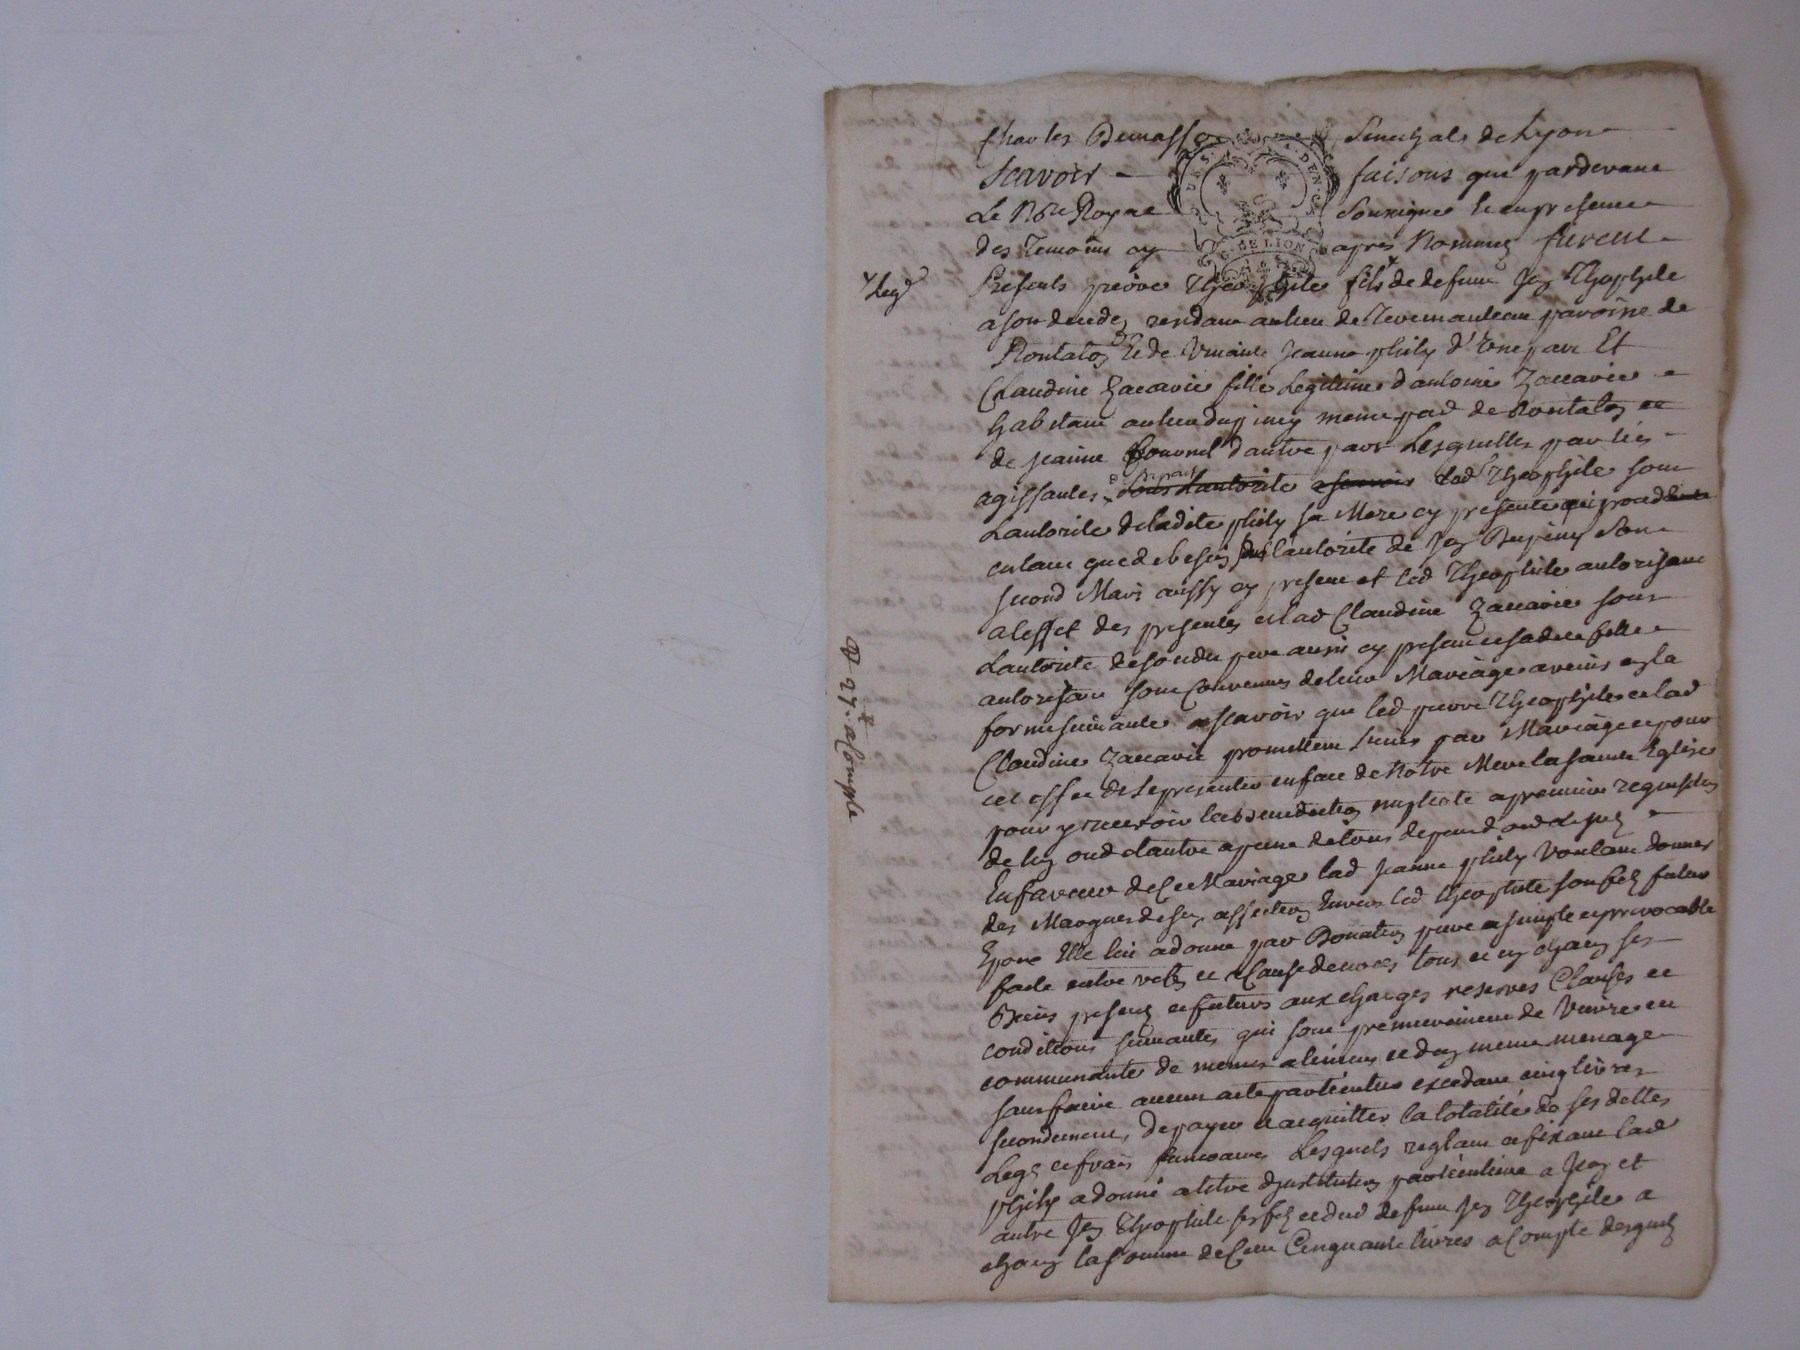 Charles Demasso Senechal de Lyon
Scavoir faisons que pardevant
Le Nore Royal Sousigné et en presence
des Temoins cy après Nommez furent
Presents pierre Theophile fils de defunt Jean Theophile
a son deceds residant au lieu de paroisse de
Rontalon et de vivante Jeanne phily d'Une part Et
Claudine Zacarie fille Legitime d'antoine Zacarie
habitant au lieu du même par de Rontalon et
de jeanne d'autre part Lesquelles parties
agissantes sous Lautorité led Theophile sous
Lautorité de ladite phily sa Mere cy presente qui procede
entant que de besoin sous l'autorité de Jean Dupiney son
second Mari aussy cy present et led Theophile autorisant
a leffet des presentes et lad Claudine Zacarie sous
Lautorité de son dit pere aussi cy present et sadite fille
autorisant sont Convenus de leur Mariage a venir en la
forme suivante a scavoir que led pierre Theophile et lad
Claudine Zacarie promettent sunir par Mariage et pour
cet effet de se presenter en face de Notre Mere la sainte Eglise
pour y recevoir la benediction nuptiale a premiere requisition
de lun ou de lautre a peine de tous depends
En faveur de Ce Mariage lad Jeanne phily Voulant donner
des Marques de son affection Envers led Theophile son fils futur
Epoux Elle lui a donné par Donation pure et simple et irrevocable
faite entre vifs et a Cause de noces tous et un chacun ses
Biens presens et futurs aux charges reserves Clauses et
conditions suivantes qui sont premierement de Vivre en
communauté de memes alimens et dun meme menage
sans faire aucun acte particulier excedant cinq livres
secondement, de payer et acquitter la totalité de ses dettes
Legs et frais funeraires Lesquels reglant et fixant lad
phily a donné a titre dinstitution particuliere a Jean et
autre Jean Theophile ses fils et dud defunt Jean Theophile a
chacun la somme de Cent Cinquante livres a Compte desquels
27 a Compte